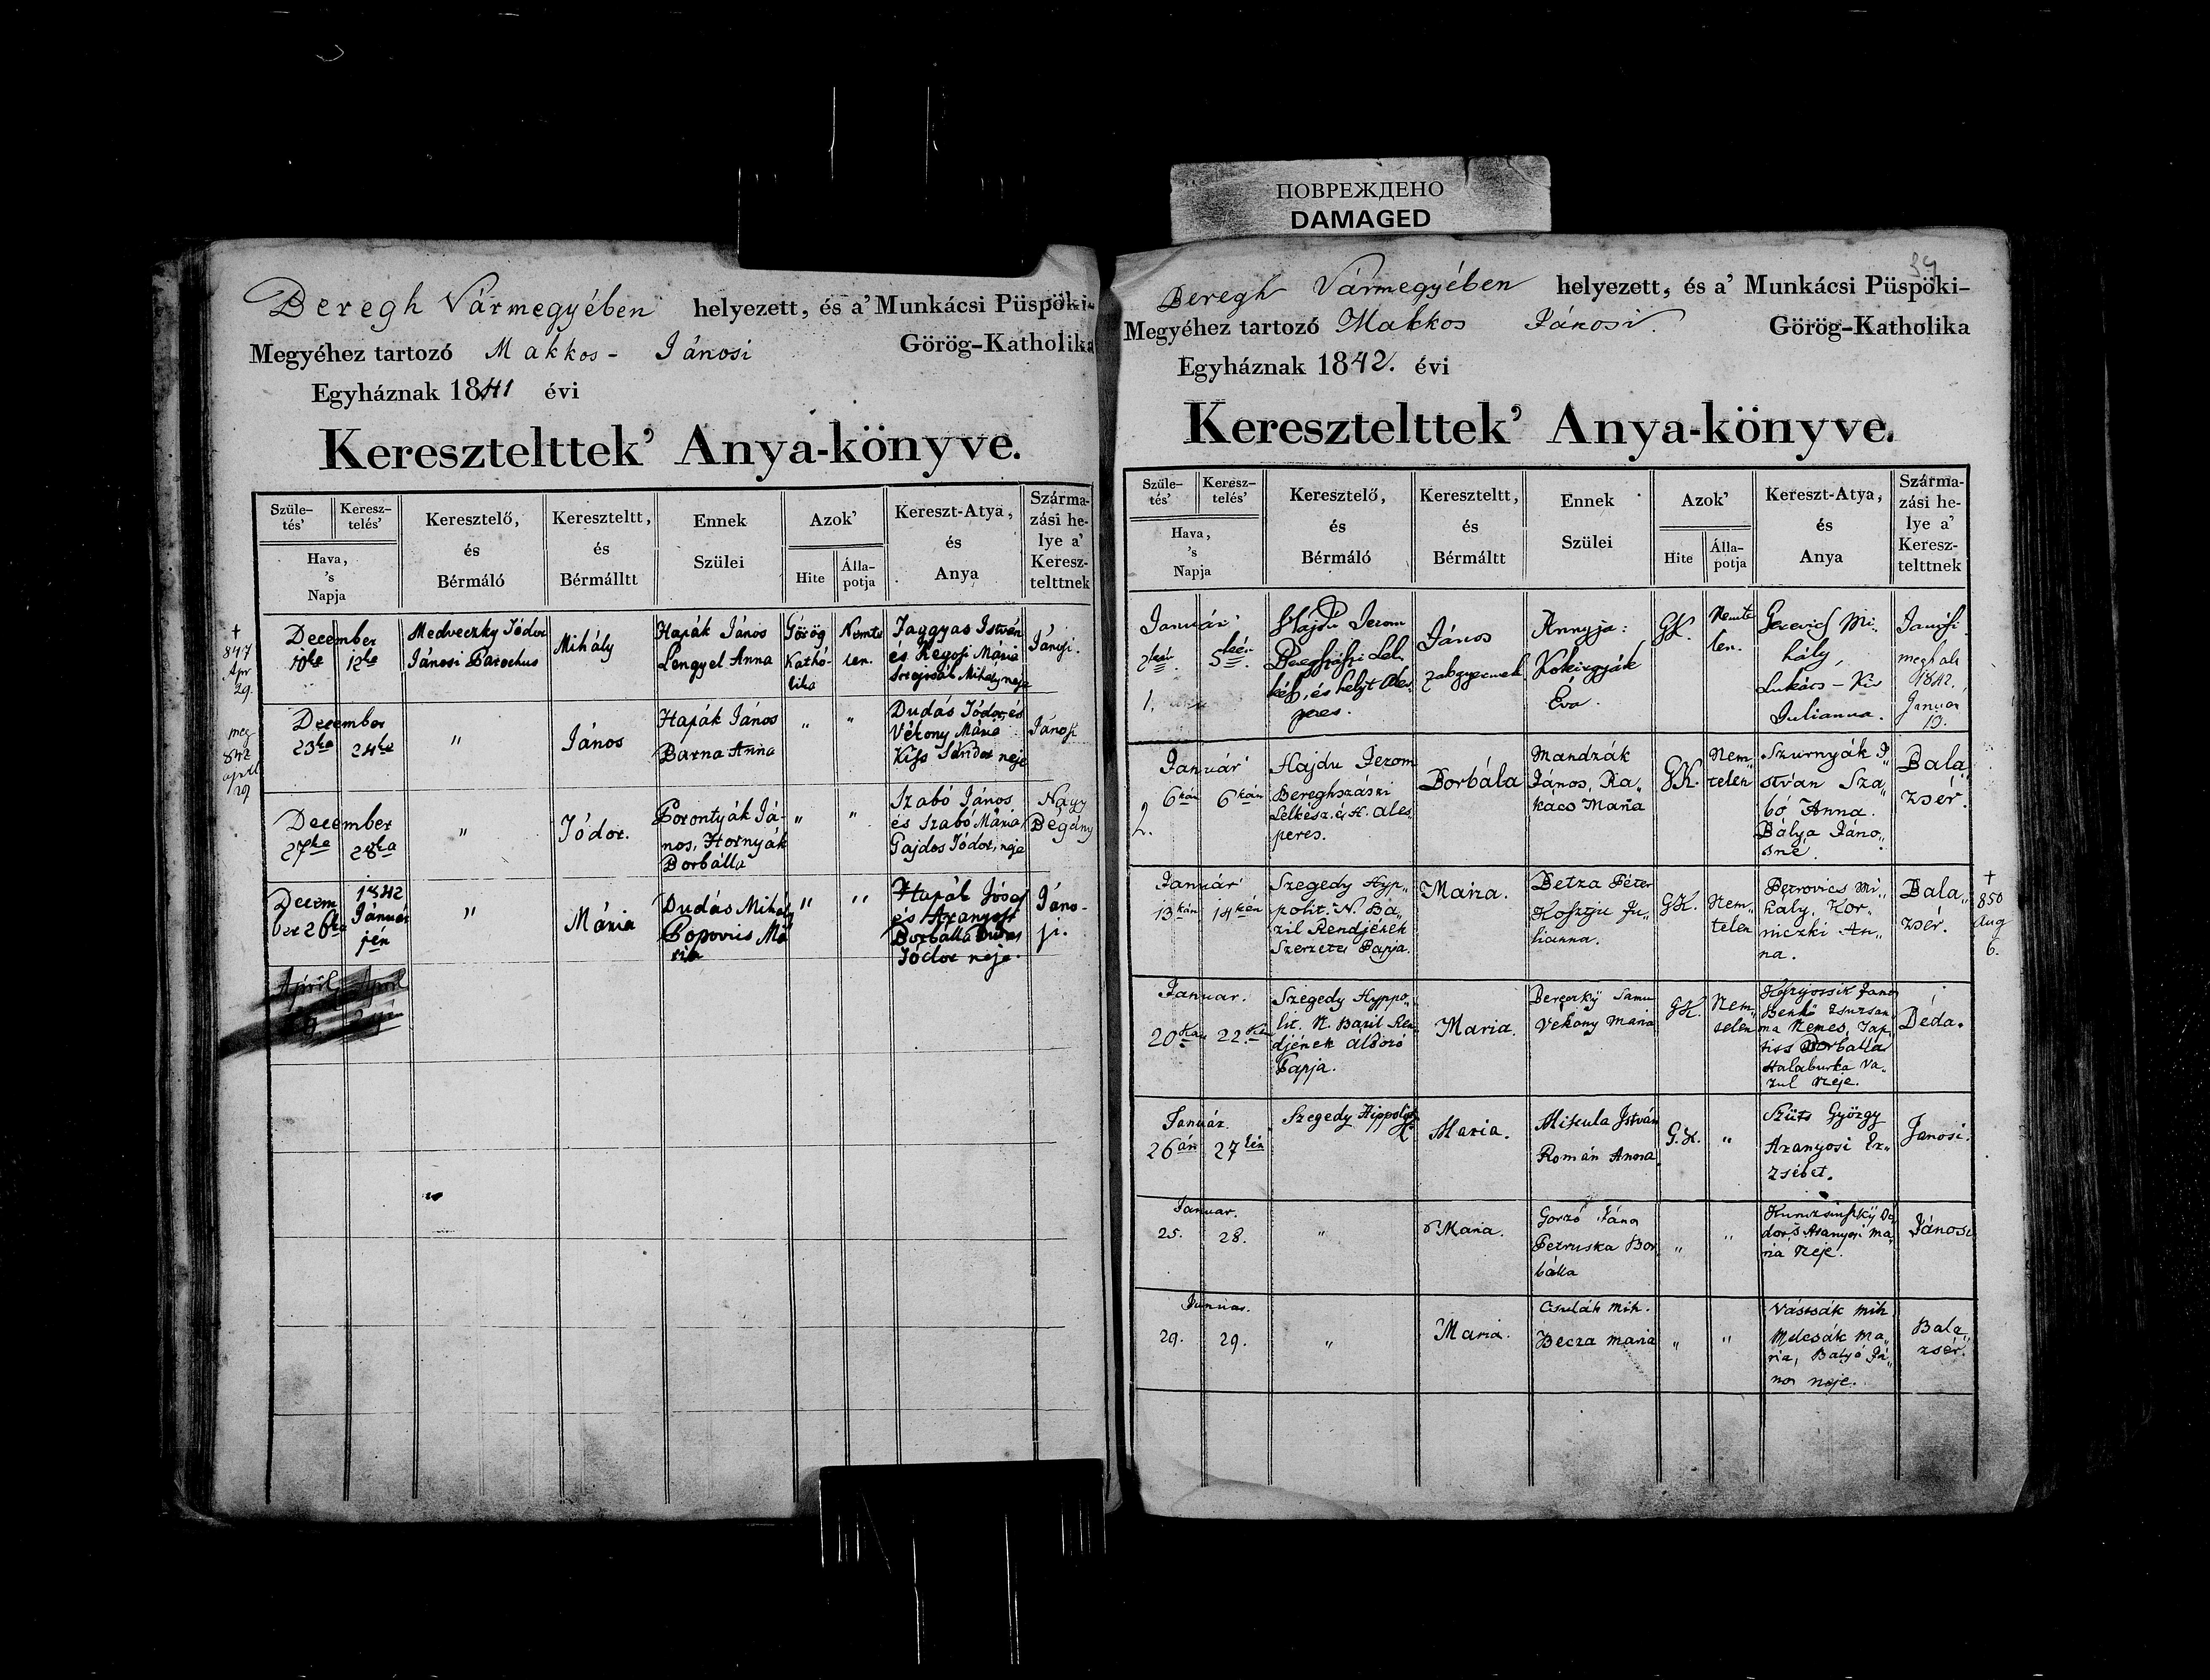 ПОВРЕЖДЕНО
DAMAGED
Beregh Vármegyében helyezett, és a' Munkácsi Püspöki-
Megyéhez tartozó Makkos - Jánosi Görög-Katholika
Egyháznak 1841 évi
Keresztelttek' Anya-könyve.
Szüle-
tés'
Keresz-
telés'
Hava,
's
Napja
Keresztelő,
és
Bérmáló
Kereszteltt,
és
Bérmálltt
Ennek
Szülei
Azok'
Hite
Álla-
potja
Kereszt-Atya,
és
Anya
Szárma-
zási he-
lye a'
Keresz-
telttnek
†
847
Apr
29.
December
10ka 12ka
Medveczky Tódor
Jánosi Parochus
Mihály
Hapák János
Lengyel Anna
Görög
Kathó-
lika
Nemte
len.
István
és Mária
Mihály neje
Jánosi.
meg
842
april
29
December
23ka 24ka
"
János
Hapák János
Barna Anna
"
"
Dudás Tódor, és
Vékony Mária
Kiss Sándor neje
Jánosi
December
27ka 28ka
"
Tódor.
Porontyák Já-
nos, Hornyák
Borbálla
"
"
Szabó János
és Szabó Mária
Gajdos Tódor, neje
Nagy
Bégány
Decem
ber 26ka
1842
Január
jén
"
Mária
Dudás Mihály
Popovics Má
ria
"
"
Hapák József
és Aranyosi
Borbálla Dudás
Tódor neje.
Jáno-
si.
April April
34
Beregh Vármegyében helyezett, és a' Munkácsi Püspöki-
Megyéhez tartozó Makkos Jánosi. Görög-Katholika
Egyháznak 1842. évi
Keresztelttek' Anya-könyve.
Szüle-
tés'
Keresz-
telés'
Hava,
's
Napja
Keresztelő,
és
Bérmáló
Kereszteltt,
és
Bérmáltt
Ennek
Szülei
Azok'
Hite
Álla-
potja
Kereszt-Atya,
és
Anya
Szárma-
zási he-
lye a'
Keresz-
telttnek
Január'
2kán. 5kén.
1.
Hajdu Jerom
Bereghszászi Lel
kész, és helyt Ales
peres.
János
zabgyermek
Annyja:
Kokirgyják
Éva.
GK.
Nemte
len.
Mi
hály,
Lukács - Kis
Julianna.
Janosi.
meghalt
1842.
Januar
19.
Január'
6kán 6kán
2.
Hajdu Jerom
Bereghszászi
Lelkész. és H. Ales
peres.
Borbála
Mandzák
János, Ra„
kacs Mária
GK.
Nem„
telen
Szurnyák I„
stván Sza„
bó Anna.
Balya Jáno„
sné.
Bala„
zsér.
Január'
13kán 14kén
Szegedy Hyp„
polit. N. Ba„
zil Rendjének
Szerzetes Papja.
Mária.
Betza Péter
Kosztju Ju„
lianna.
GK.
Nem„
telen
Petrovics Mi„
hály, Kor„
niczki An„
na.
Bala„
zsér.
†
850
Aug
6.
Januar.
20kán 22kén
Szegedy Hyppo„
lit. N. Bazil Ren„
djének áldozó
Papja.
Maria.
Bereczky Samu
Vékony Maria
GK.
Nem„
telen
Janos
Benkő Zsuzsan
na Nemes,
Borbálla
Halaburka Va„
zul Neje.
Déda.
Január.
26án 27kén
Szegedy Hippolit
Maria.
Mikula István
Román Anna.
G.K.
"
Szüts György
Aranyosi Er„
zsébet.
Janosi.
Januar.
25. 28.
"
Maria.
Gorzó János
Petruska Bor„
bálla
"
"
dor's Aranyosi Ma„
ria Neje.
Jánosi
Januar.
29. 29.
"
Maria.
Csulák Mih.
Becza Maria
"
"
Vástsák Mih
Melcsák Ma„
ria, Balyó Já„
nos neje.
Bala„
zsér.